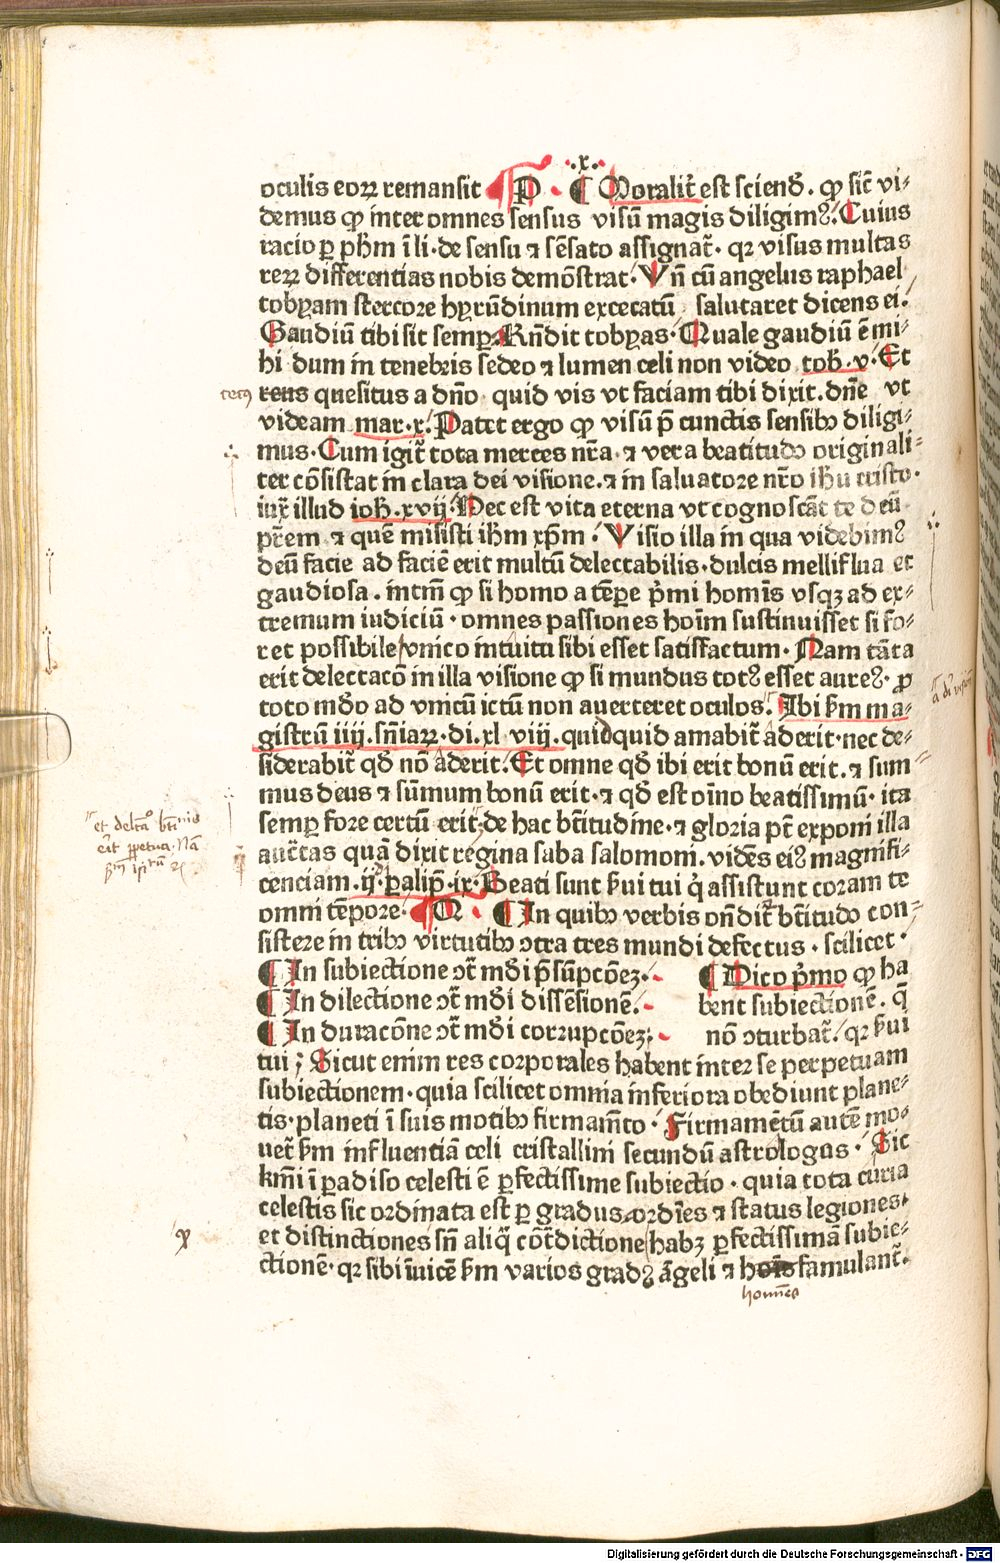 .x.
oculis eoꝝ remansit P ¶ Moralit̄ est sciend̄. ꝙ sic̄ vi⸗
demus ꝙ inter omnes sensus visū magis diligimꝰ. Cuius
racio ꝑ ph̄m ī li. de sensu ⁊ sēsato assignat̄. qꝛ visus multas
reꝝ differentias nobis demōstrat. Vn̄ cū angelus raphael
tobyam stercore hyrūdinum excecatū salutaret dicens ei.
Gaudiū tibi sit semꝑ. Rn̄dit tobyas. Quale gaudiū ē mi⸗
hi dum in tenebris sedeo ⁊ lumen celi non video tob. v. Et
cecꝰ rens quesitus a dn̄o quid vis vt faciam tibi dixit. dn̄e vt
videam mar. x. Patet ergo ꝙ visū p̄ cunctis sensibꝰ diligi⸗
mus. Cum igit̄ tota merces nr̄a ⁊ vera beatitudo originali⸗
ter cōsistat in clara dei visione. ⁊ in saluatore nr̄o ih̄u cristo.
iux̄ illud ioh. xvij. Hec est vita eterna vt cognoscāt te deū
pr̄em ⁊ quē misisti ih̄m xp̄m. Visio illa in qua videbimꝰ
deū facie ad faciē erit multū delectabilis. dulcis melliflua et
gaudiosa. intm̄ ꝙ si homo a tēꝑe p̄mi homīs vsqꝫ ad ex⸗
tremum iudiciū. omnes passiones hoīm sustinuisset si fo⸗
ret possibile vnico intuitu sibi esset satisfactum. Nam tāta
erit delectacō in illa visione ꝙ si mundus totꝰ esset aureꝰ. ꝓ
a di visiōe
toto mōdo ad vnicū ictū non auerteret oculos. Ibi ẜm ma⸗
gistrū iiij. sn̄iaꝝ. di. xl viij. quidquid amabit̄ aderit. nec de⸗
siderabit̄ qd̄ nō aderit. Et omne qd̄ ibi erit bonū erit. ⁊ sum⸗
mus deus ⁊ sūmum bonū erit. ⁊ qd̄ est oīno beatissimū. ita
semꝑ fore certū erit. de hac bt̄itudine. ⁊ gloria pt̄ exponi illa
auct̄tas quā dixit regina saba salomoni. vidēs eiꝰ magnifi⸗
cenciam. ij. ꝑalip̄. ix. Beati sunt ẜui tui qi assistunt coram te
omni tēpore. Q ¶ In quibꝰ verbis on̄dit̄ bt̄itudo con⸗
sistere in tribꝰ virtutibꝰ ↄtra tres mundi defectus. scilicet.
¶ In subiectione ↄt̄ mōi p̄sūpcōeꝫ.
¶ In dilectione ↄt̄ mōi dissēsionē.
¶ In duracōne ↄt̄ mōi corrupcōeꝫ.
¶ Dico p̄mo ꝙ ha
bent subiectionē. q̄
nō ↄturbat̄. qꝛ ẜui
tui; Sicut enim res corporales habent inter se perpetuam
subiectionem. quia scilicet omnia inferiora obediunt plane⸗
tis. planeti ī suis motibꝰ firmam̄to. Firmamētū autē mo⸗
uet̄ ẜm influentiā celi cristallini secundū astrologos. Sic
ẜm̄i ī ꝑadiso celesti ē ꝑfectissime subiectio. quia tota curia
celestis sic ordinata est ꝑ gradus ordīes ⁊ status legiones.
et distinctiones sn̄ aliq̄ cōt̄dictione habꝫ ꝑfectissimā subie⸗
ctionē. qꝛ sibi īuicē ẜm varios gradꝰ āgeli ⁊ hoīs famulant̄.
homines